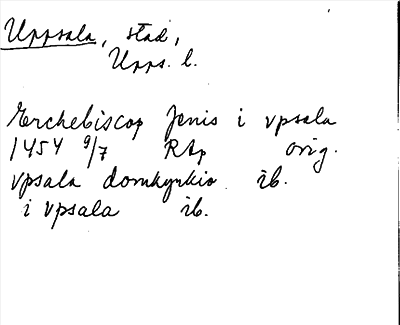 Uppsala, stad,
Upps. l.
Erchebiscop Jenis i vpsala
1454 9/7 RAp orig.
vpsala domkyrkio ib.
i vpsala ib.